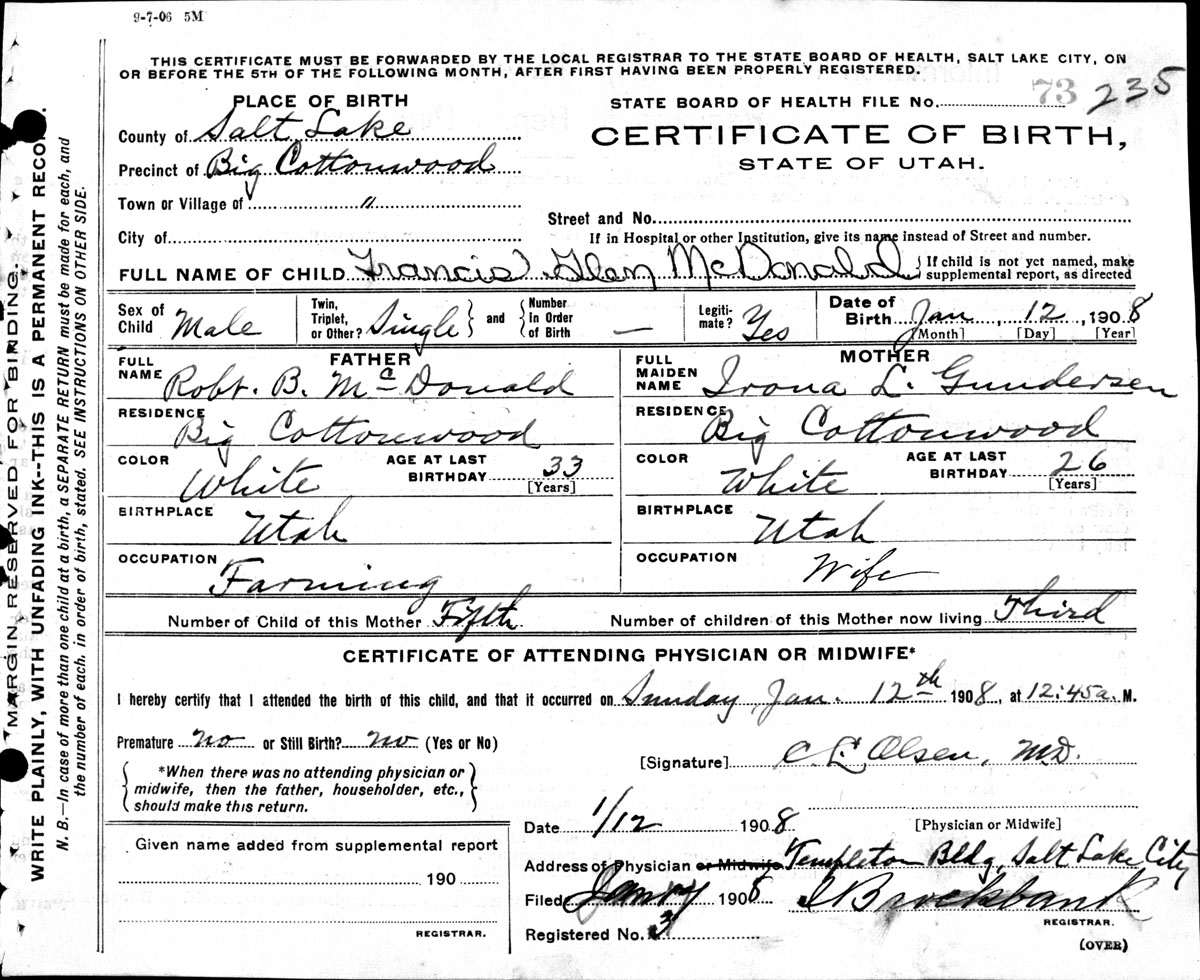 9-7-06 5M
THIS CERTIFICATE MUST BE FORWARDED BY THE LOCAL REGISTRAR TO THE STATE BOARD OF HEALTH, SALT LAKE CITY, ON
OR BEFORE THE 5TH OF THE FOLLOWING MONTH, AFTER FIRST HAVING BEEN PROPERLY REGISTERED.
PLACE OF BIRTH
County of Salt Lake
Precinct of Big Cottonwood
Town or Village of "
City of
STATE BOARD OF HEALTH FILE No. 73 235
CERTIFICATE OF BIRTH,
STATE OF UTAH.
Street and No.
If in Hospital or other Institution, give its name instead of Street and number.
FULL NAME OF CHILD Francis Glen McDonald { If child is not yet named, make
supplemental report, as directed
Sex of Child Male
Twin, Triplet, or Other? Single } and { Number In Order of Birth —
Legiti-mate? Yes
Date of Birth Jan, 12, 1908
[Month] [Day] [Year]
FATHER
FULL NAME Robt. B. McDonald
RESIDENCE Big Cottonwood
COLOR White AGE AT LAST BIRTHDAY 33 [Years]
BIRTHPLACE Utah
OCCUPATION Farming
MOTHER
FULL MAIDEN NAME Irona L. Gundersen
RESIDENCE Big Cottonwood
COLOR White AGE AT LAST BIRTHDAY 26 [Years]
BIRTHPLACE Utah
OCCUPATION Wife
Number of Child of this Mother Fifth Number of children of this Mother now living Third
CERTIFICATE OF ATTENDING PHYSICIAN OR MIDWIFE*
I hereby certify that I attended the birth of this child, and that it occurred on Sunday, Jan. 12th 1908, at 12:45a. M.
Premature no or Still Birth? no (Yes or No)
*When there was no attending physician or
midwife, then the father, householder, etc.,
should make this return.
[Signature] C L Olsen, MD.
[Physician or Midwife]
Date 1/12 1908
Address of Physician or Midwife Templeton Bldg, Salt Lake City
Filed 1908 Brockbank
REGISTRAR.
Registered No. 3
(OVER)
Given name added from supplemental report
190
REGISTRAR.
MARGIN RESERVED FOR BINDING.
WRITE PLAINLY, WITH UNFADING INK--THIS IS A PERMANENT RECO
N. B.—In case of more than one child at a birth, a SEPARATE RETURN must be made for each, and
the number of each, in order of birth, stated. SEE INSTRUCTIONS ON OTHER SIDE.